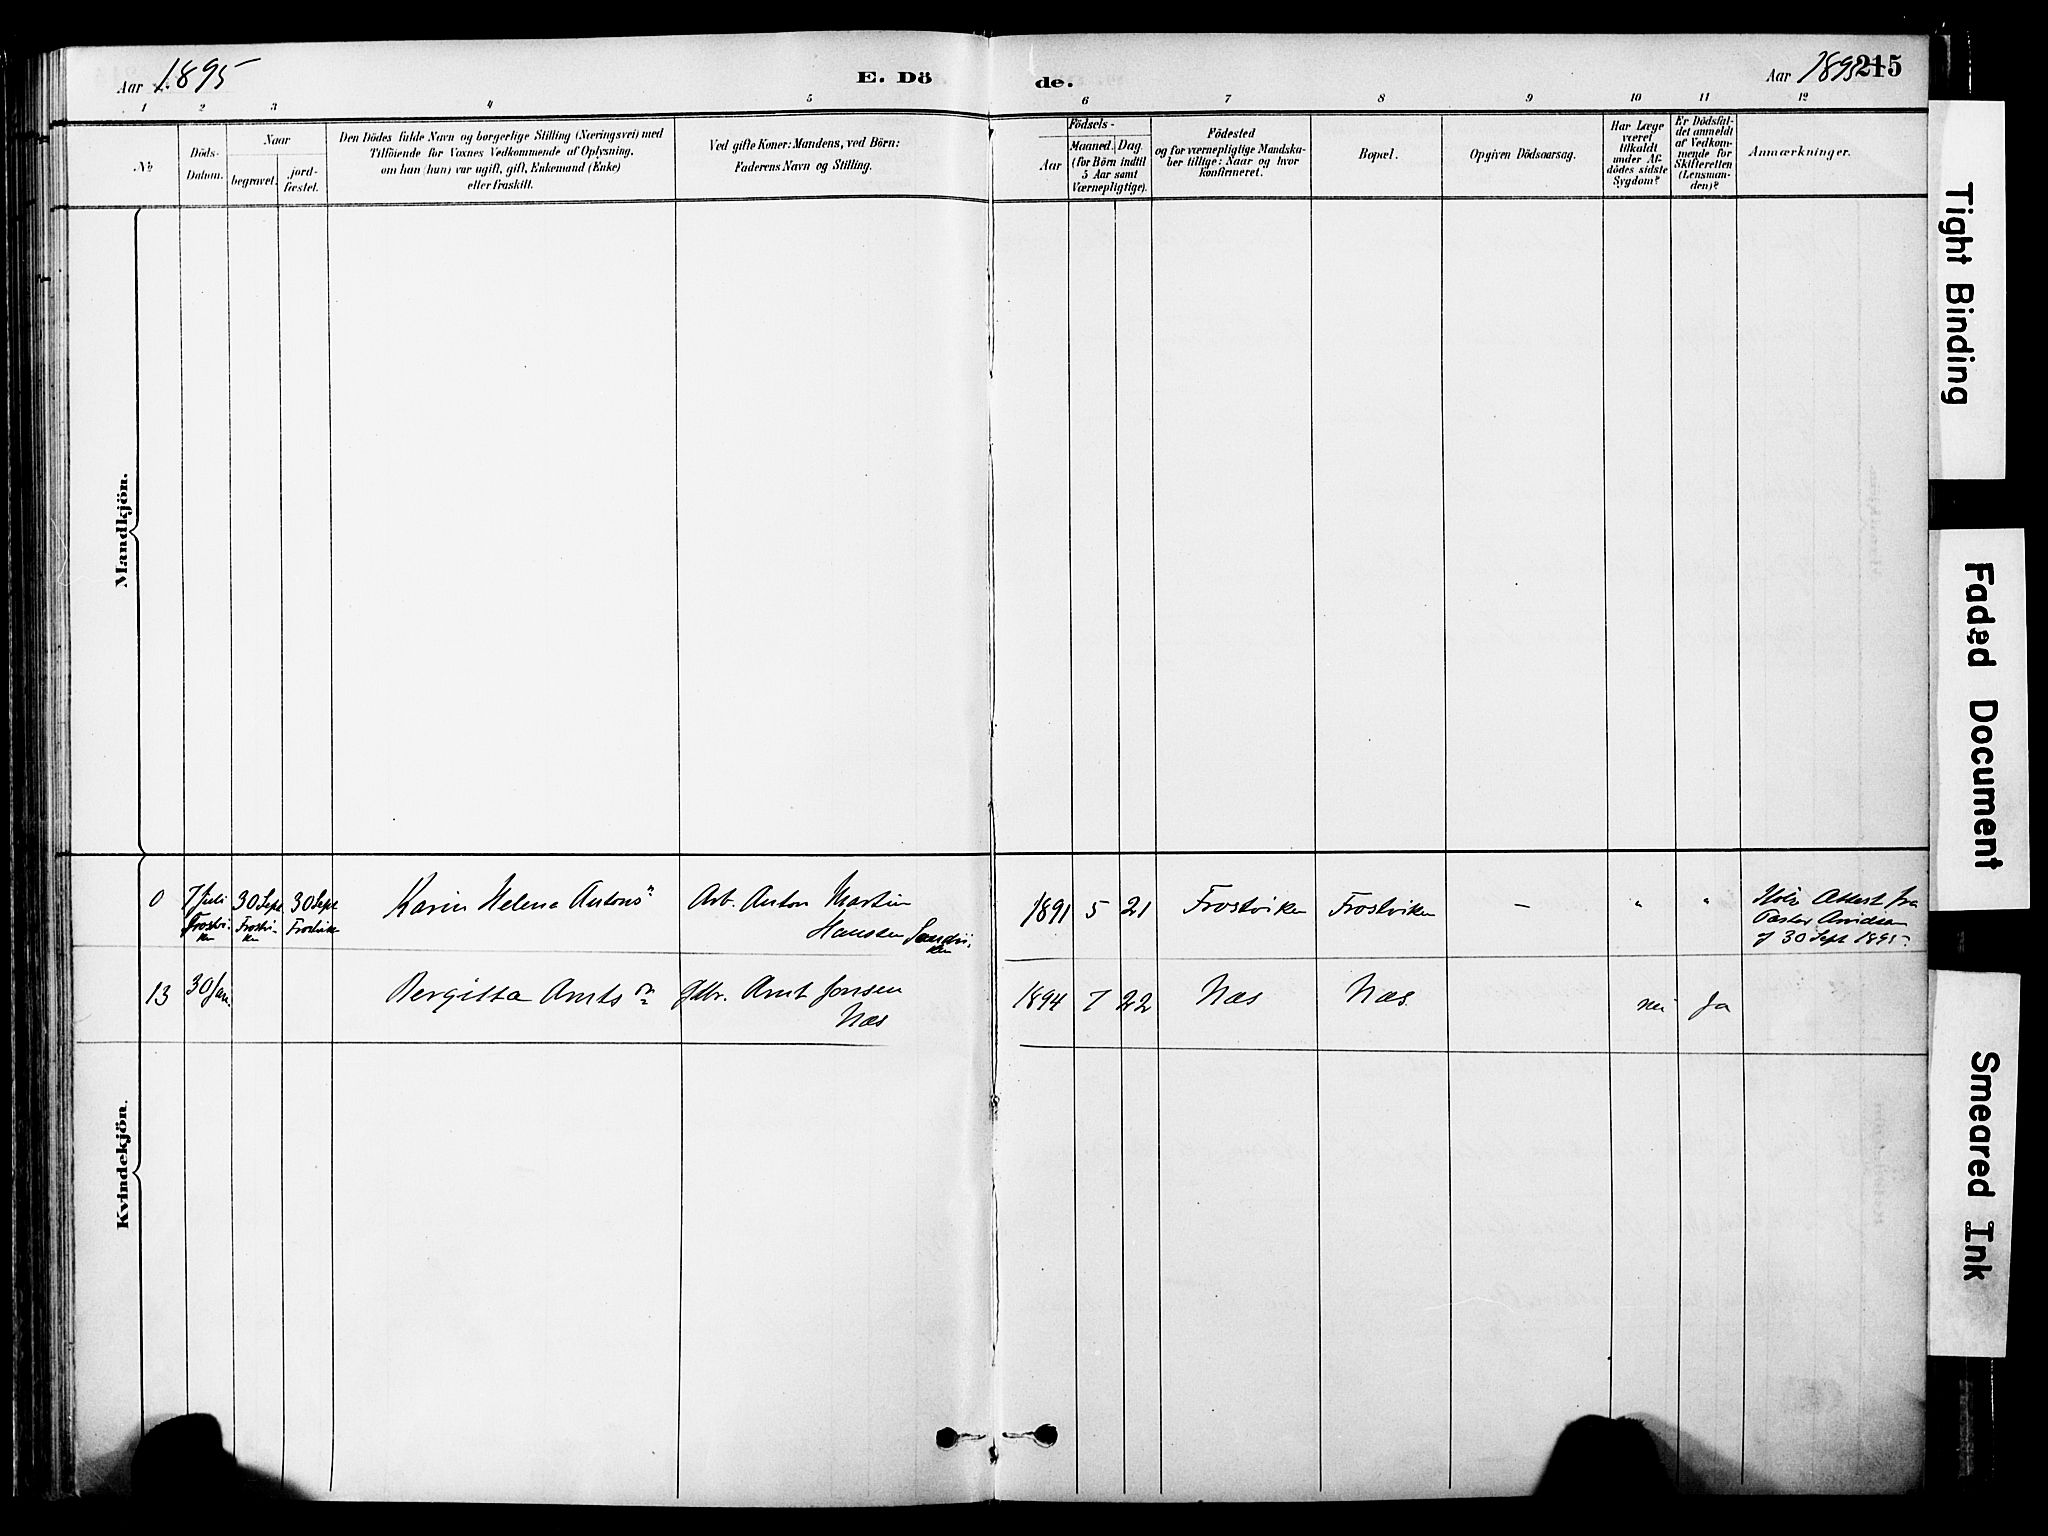 Aar 1895
E. Dö
de.
Aar 1895
215
1 2 3 4 5 6 7 8 9 10 11 12
No
Döds-
Datum.
Naar
begravet.
jord-
fæstet.
Den Dödes fulde Navn og borgerlige Stilling (Næringsvei) med
Tilföiende for Voxnes Vedkommende af Oplysning,
om han (hun) var ugift, gift, Enkemand (Enke)
eller fraskilt.
Ved gifte Koner: Mandens, ved Börn:
Faderens Navn og Stilling.
Födsels-
Aar
Maaned.
Dag
(for Börn indtil
5 Aar samt
Værnepligtige).
Födested
og for værnepligtige Mandska-
ber tillige: Naar og hvor
konfirmeret.
Bopæl.
Opgiven Dödsaarsag.
Har Læge
været
tilkaldt
under Af-
dödes sidste
Sygdom?
Er Dödsfal-
det anmeldt
af Vedkom-
mende for
Skifteretten
(Lensman-
den)?
Anmærkninger.
Mandkjön.
Kvindekjön.
0
7 Juli
Frostvi-
ken
30 Sept.
Frostvi-
ken
30 Sept
Frostviken
Karin Helena Antons
Arb. Anton Martin
Hanssen Sandvi-
ken
1891 5 21 Frostviken Frostviken - " "
Attest fra
Pastor Arvidson
af 30 Sept 1895
13 30 Jan. Bergitta Arnts Gdbr. Arnt Jonsen
Næs
1894 7 22 Næs Næs nei Ja
Tight Binding
Faded Document
Smeared Ink